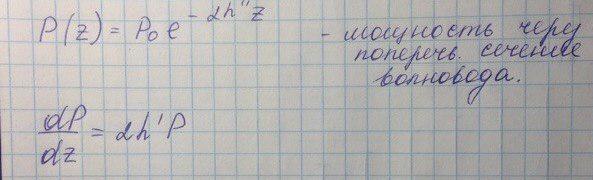 P(z) = P₀ e^{-2h''z} - мощность через
поперечь. сечение
волновода.
dP/dz = 2h'P